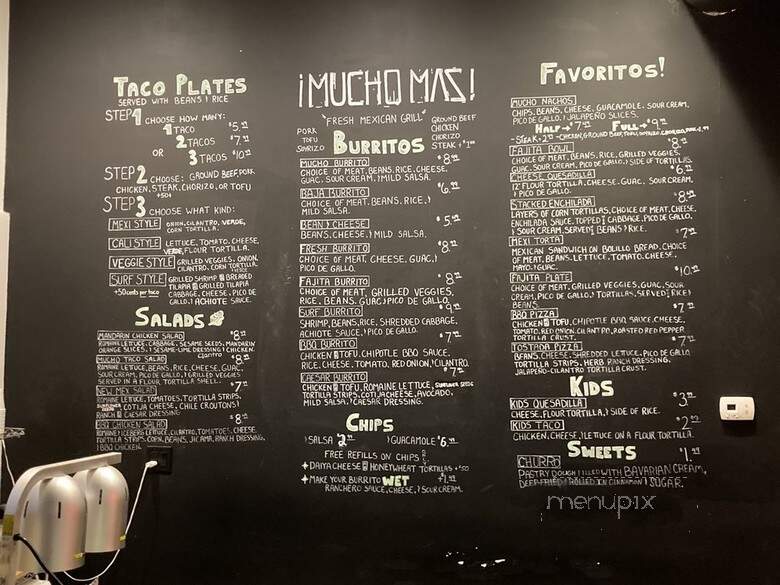 TACO PLATES
SERVED WITH BEANS & RICE
STEP 1 CHOOSE HOW MANY:
1 TACO $5.
2 TACOS $7.
OR 3 TACOS $10.
STEP 2 CHOOSE: GROUND BEEF, PORK
CHICKEN, STEAK, CHORIZO, OR TOFU
+50¢
STEP 3 CHOOSE WHAT KIND:
MEXI STYLE ONION, CILANTRO, VERDE,
CORN TORTILLA.
CALI STYLE LETTUCE, TOMATO, CHEESE,
VERDE, FLOUR TORTILLA.
VEGGIE STYLE GRILLED VEGGIES, ONION,
CILANTRO, CORN TORTILLA
SURF STYLE GRILLED SHRIMP BREADED
TILAPIA GRILLED TILAPIA
+50 cents per taco CABBAGE, CHEESE, PICO DE
GALLO, & ACHIOTE SAUCE.
SALADS
MANDARIN CHICKEN SALAD $8.
ROMAINE LETTUCE, CABBAGE, SESAME SEEDS, MANDARIN
ORANGE SLICES, & SESAME-LIME DRESSING & CHICKEN.
CILANTRO
MUCHO TACO SALAD $8.
ROMAINE LETTUCE, BEANS, RICE, CHEESE, GUAC,
SOUR CREAM, PICO DE GALLO, & GRILLED VEGGIES
SERVED IN A FLOUR TORTILLA SHELL.
NEW MEX SALAD $7.
ROMAINE LETTUCE, TOMATOES, TORTILLA STRIPS,
COTIJA CHEESE, CHILE CROUTONS &
RANCH CAESAR DRESSING.
BBQ CHICKEN SALAD $8.
ROMAINE & ICEBERG LETTUCE, CILANTRO, TOMATOES, CHEESE
TORTILLA STRIPS, CORN, BEANS, JICAMA, RANCH DRESSING,
& BBQ CHICKEN.
¡MUCHO MAS!
"FRESH MEXICAN GRILL"
PORK
TOFU
SORIZO
GROUND BEEF
CHICKEN
CHORIZO
STEAK +$1
BURRITOS
MUCHO BURRITO $8.
CHOICE OF MEAT, BEANS, RICE, CHEESE,
GUAC, SOUR CREAM, & MILD SALSA.
BAJA BURRITO $6.
CHOICE OF MEAT, BEANS, RICE, &
MILD SALSA.
BEAN & CHEESE $5.
BEANS, CHEESE, & MILD SALSA.
FRESH BURRITO $8.
CHOICE OF MEAT, CHEESE, GUAC, &
PICO DE GALLO.
FAJITA BURRITO $8.
CHOICE OF MEAT, GRILLED VEGGIES,
RICE, BEANS, GUAC & PICO DE GALLO.
SURF BURRITO $9.
SHRIMP, BEANS, RICE, SHREDDED CABBAGE,
ACHIOTE SAUCE, & PICO DE GALLO.
BBQ BURRITO $7.
CHICKEN TOFU, CHIPOTLE BBQ SAUCE,
RICE, CHEESE, TOMATO, RED ONION, & CILANTRO.
CAESAR BURRITO $7.
CHICKEN TOFU, ROMAINE LETTUCE, SUNFLOWER SEEDS
TORTILLA STRIPS, COTIJA CHEESE, AVOCADO,
MILD SALSA, & CAESAR DRESSING.
CHIPS
& SALSA $2. & GUACAMOLE $6.
FREE REFILLS ON CHIPS
DAIYA CHEESE HONEYWHEAT TORTILLAS +50
MAKE YOUR BURRITO WET +$1.
RANCHERO SAUCE, CHEESE, & SOUR CREAM.
FAVORITOS!
MUCHO NACHOS
CHIPS, BEANS, CHEESE, GUACAMOLE, SOUR CREAM,
PICO DE GALLO, & JALAPEÑO SLICES.
HALF → $7. FULL → $9.
FAJITA BOWL $8.
CHOICE OF MEAT, BEANS, RICE, GRILLED VEGGIES,
GUAC, SOUR CREAM, PICO DE GALLO, & SIDE OF TORTILLAS.
CHEESE QUESADILLA $6.
12" FLOUR TORTILLA, CHEESE, GUAC, SOUR CREAM,
& PICO DE GALLO.
STACKED ENCHILADA $8.
LAYERS OF CORN TORTILLAS, CHOICE OF MEAT, CHEESE,
ENCHILADA SAUCE, TOPPED CABBAGE, PICO DE GALLO,
& SOUR CREAM, SERVED BEANS & RICE.
MEXI TORTA $7.
MEXICAN SANDWICH ON BOLILLO BREAD, CHOICE
OF MEAT, BEANS, LETTUCE, TOMATO, CHEESE,
MAYO, & GUAC.
FAJITA PLATE $10.
CHOICE OF MEAT, GRILLED VEGGIES, GUAC, SOUR
CREAM, PICO DE GALLO, & TORTILLAS, SERVED RICE &
BEANS.
BBQ PIZZA $7.
CHICKEN TOFU, CHIPOTLE BBQ SAUCE, CHEESE,
TOMATO, RED ONION, CILANTRO, ROASTED RED PEPPER
TORTILLA CRUST.
TOSTADA PIZZA $7.
BEANS, CHEESE, SHREDDED LETTUCE, PICO DE GALLO
TORTILLA STRIPS, HERB RANCH DRESSING,
JALAPEÑO-CILANTRO TORTILLA CRUST.
KIDS
KIDS QUESADILLA $3.
CHEESE, FLOUR TORTILLA, & SIDE OF RICE.
KIDS TACO $2.
CHICKEN, CHEESE, & LETTUCE ON A FLOUR TORTILLA.
SWEETS
CHURRO $1.
PASTRY DOUGH FILLED WITH BAVARIAN CREAM,
DEEP-FRIED & ROLLED IN CINNAMON & SUGAR.
menupix